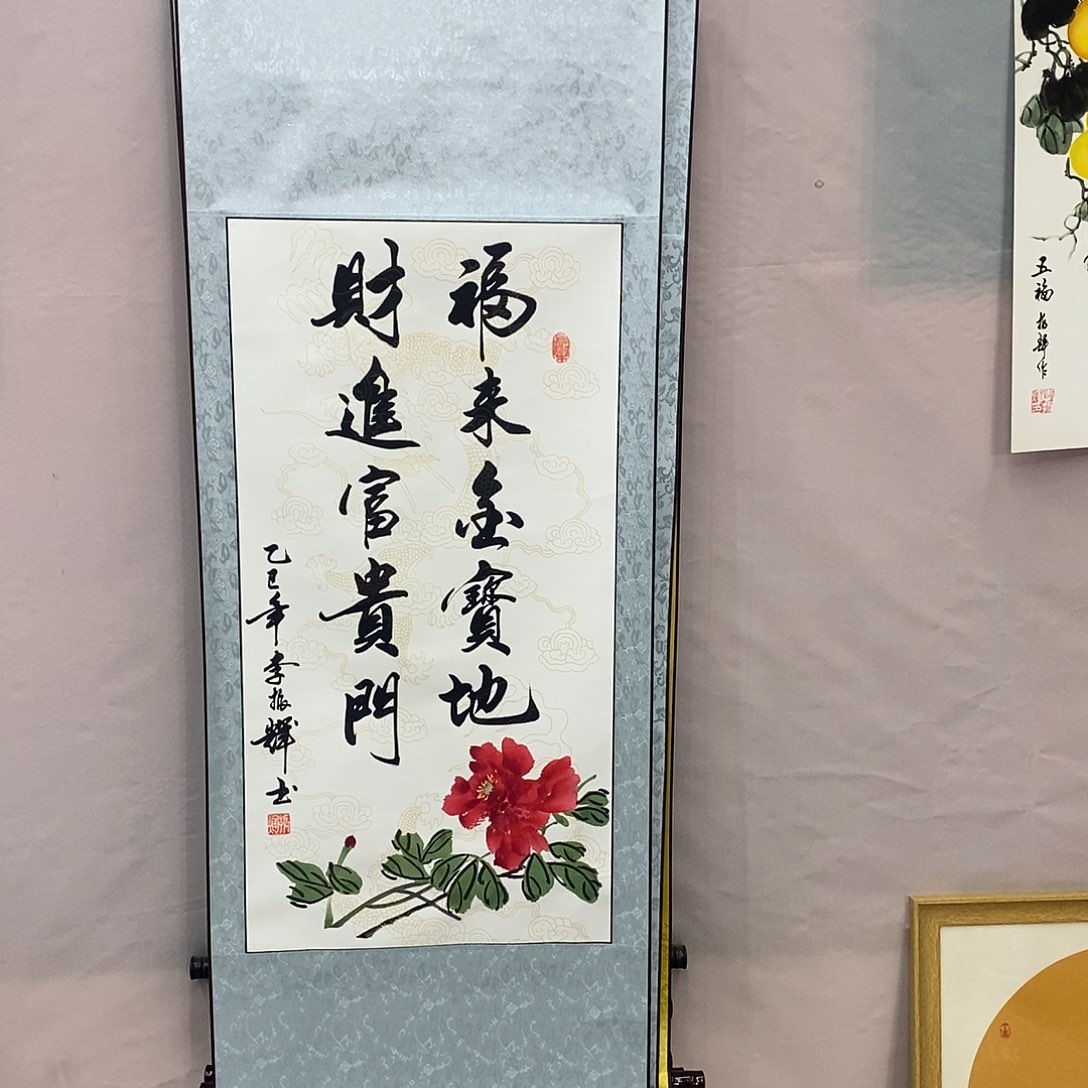 福来金寶地
財進富貴門
乙巳年李振輝书
五福 振輝作